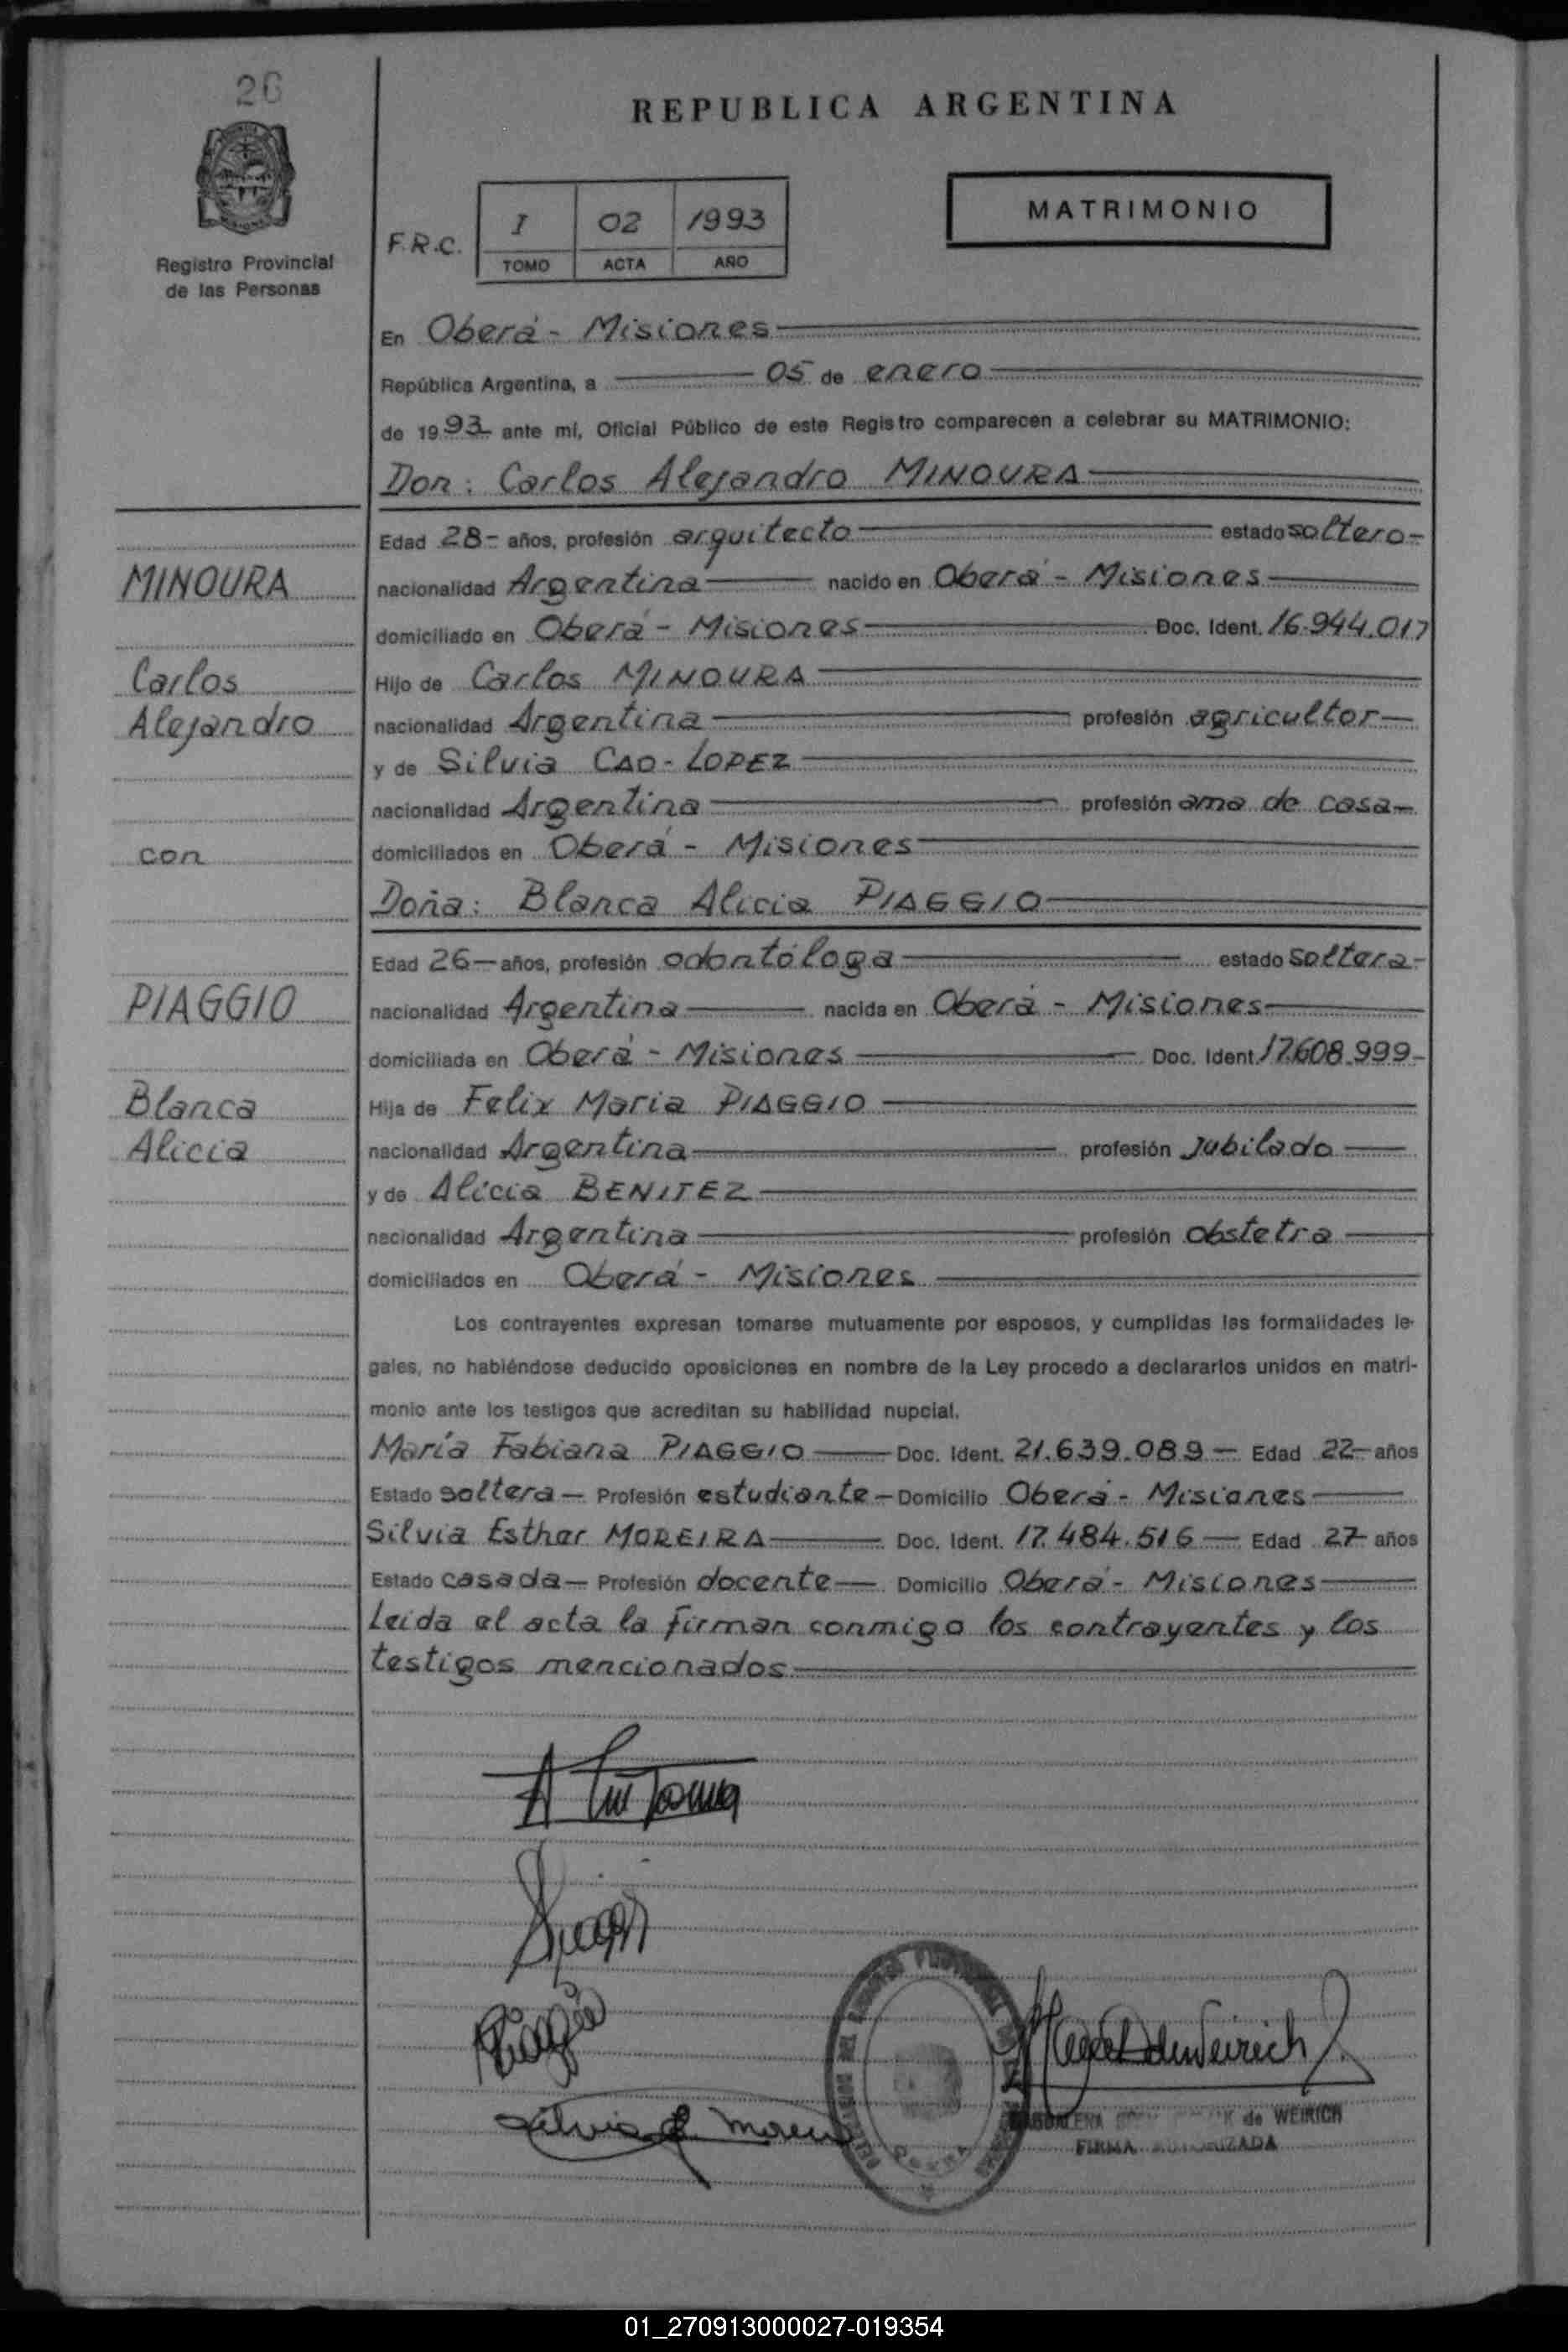 26
REPUBLICA ARGENTINA
MATRIMONIO
F.R.C.
I 02 1993
TOMO ACTA AÑO
Registro Provincial
de las Personas
En Oberá - Misiones
República Argentina, a 05 de enero
de 1993 ante mi, Oficial Público de este Registro comparecen a celebrar su MATRIMONIO:
Don: Carlos Alejandro MINOURA
Edad 28- años, profesión arquitecto estado soltero-
MINOURA
nacionalidad Argentina nacido en Oberá - Misiones
domiciliado en Oberá - Misiones Doc. Ident. 16.944.017
Carlos
Hijo de Carlos MINOURA
Alejandro
nacionalidad Argentina profesión agricultor
y de Silvia CAO-LOPEZ
nacionalidad Argentina profesión ama de casa
con
domiciliados en Oberá - Misiones
Doña: Blanca Alicia PIAGGIO
Edad 26 años, profesión odontóloga estado soltera-
PIAGGIO
nacionalidad Argentina nacida en Oberá - Misiones
domiciliada en Oberá - Misiones Doc. Ident. 17.608.999-
Blanca
Hija de Felix Maria PIAGGIO
Alicia
nacionalidad Argentina profesión Jubilado
y de Alicia BENITEZ
nacionalidad Argentina profesión obstetra
domiciliados en Oberá - Misiones
Los contrayentes expresan tomarse mutuamente por esposos, y cumplidas las formalidades le-
gales, no habiéndose deducido oposiciones en nombre de la Ley procedo a declararlos unidos en matri-
monio ante los testigos que acreditan su habilidad nupcial.
María Fabiana PIAGGIO Doc. Ident. 21.639.089 Edad 22 años
Estado soltera Profesión estudiante Domicilio Oberá - Misiones
Silvia Esther MOREIRA Doc. Ident. 17.484.516 Edad 27 años
Estado casada Profesión docente Domicilio Oberá - Misiones
Leída el acta la firman conmigo los contrayentes y los
testigos mencionados
Silvia E. Moreira
de WEIRICH
FIRMA AUTORIZADA
01_270913000027-019354